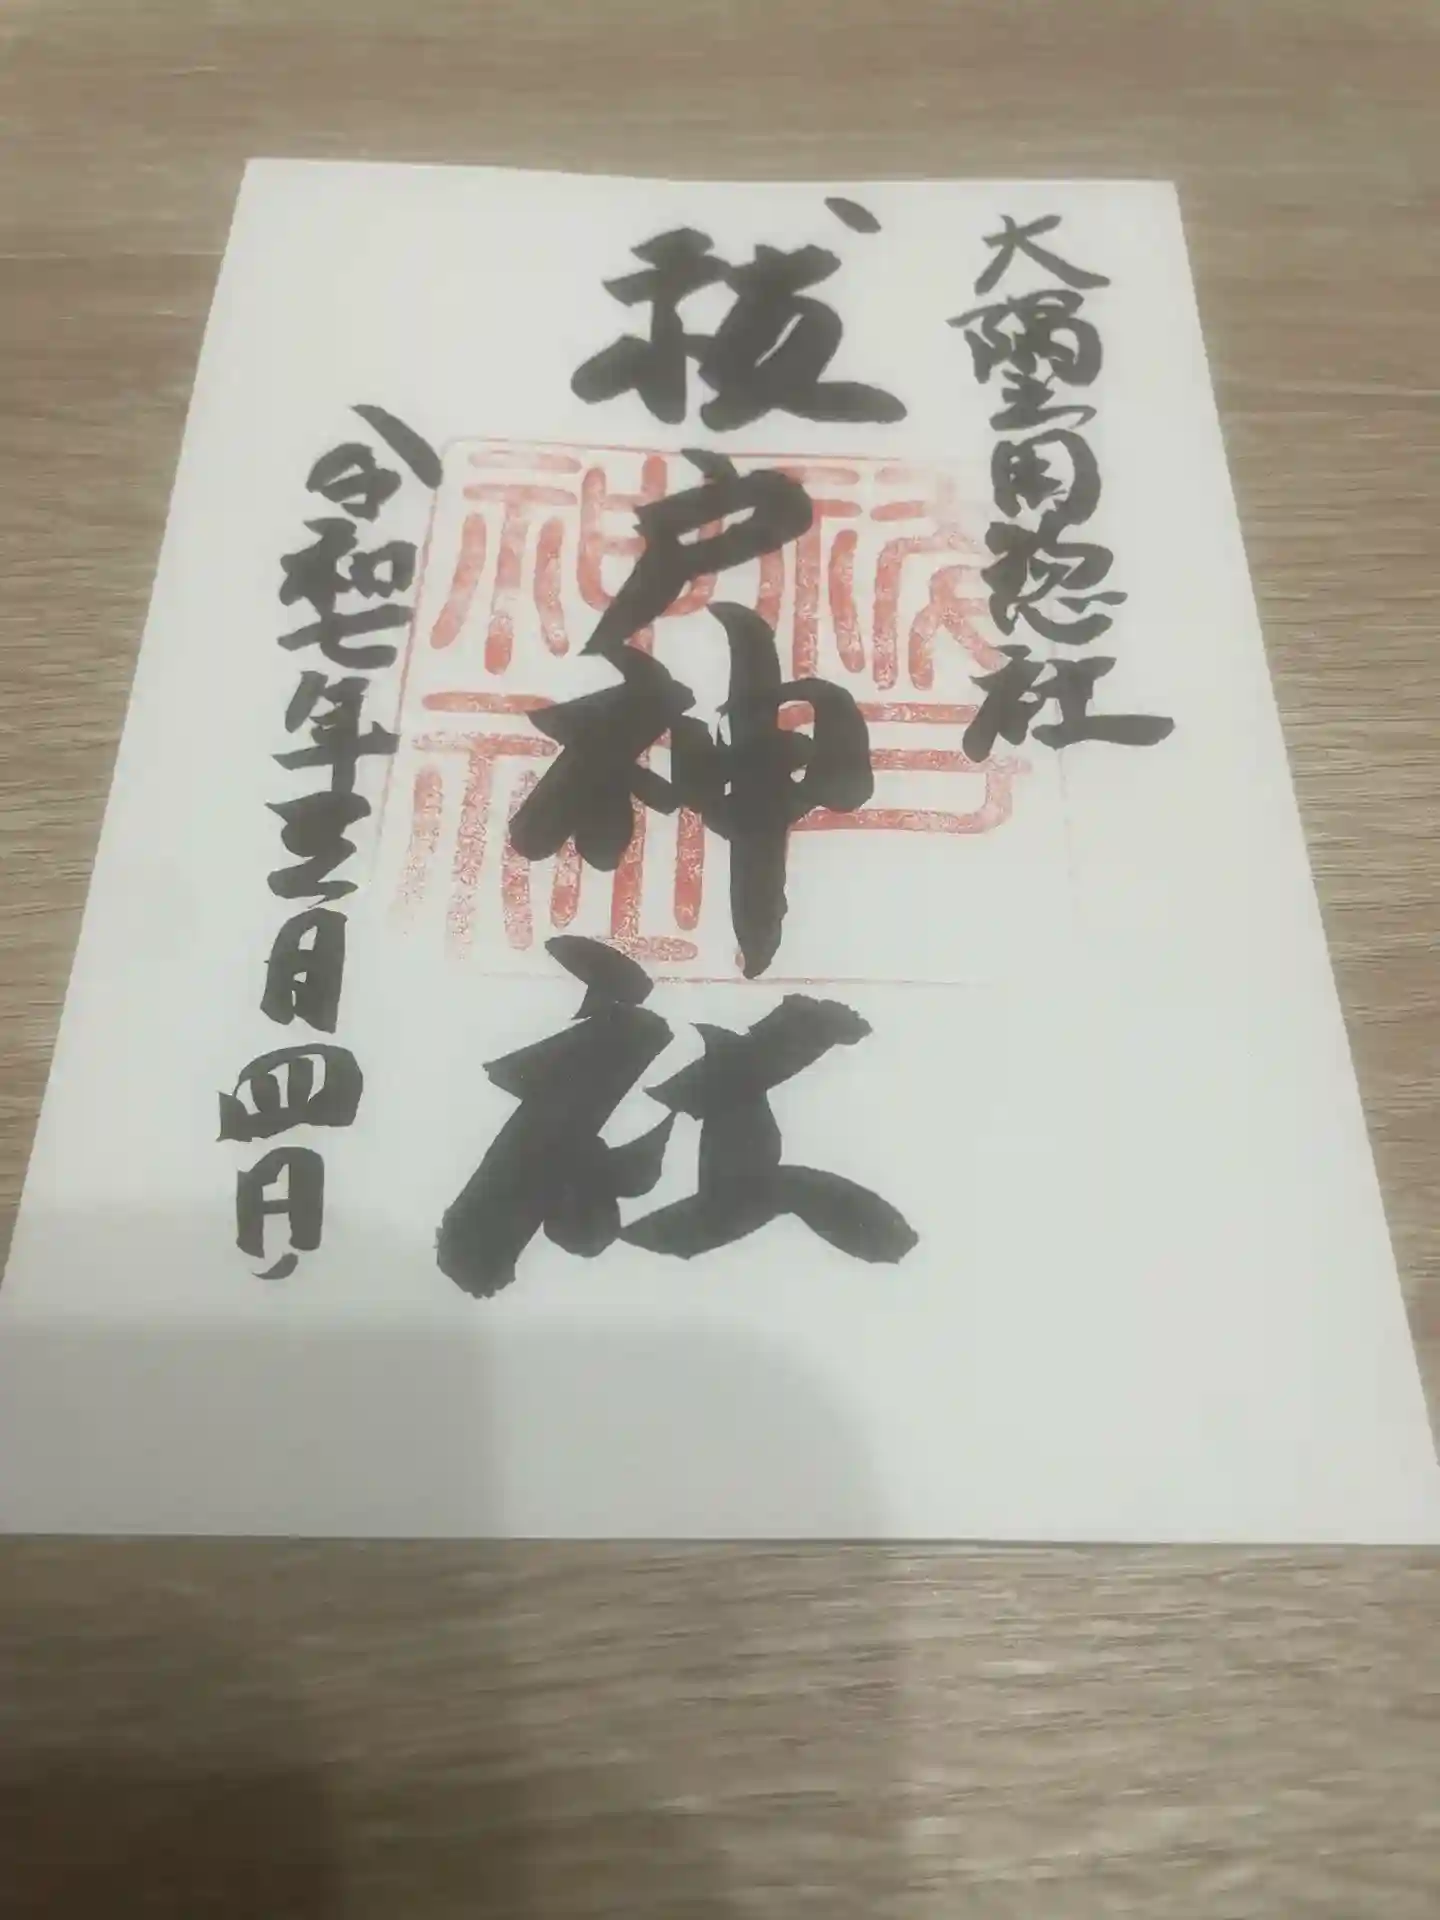 大隅之国惣社
祓戸神社
令和七年三月四日
祓戸
神社